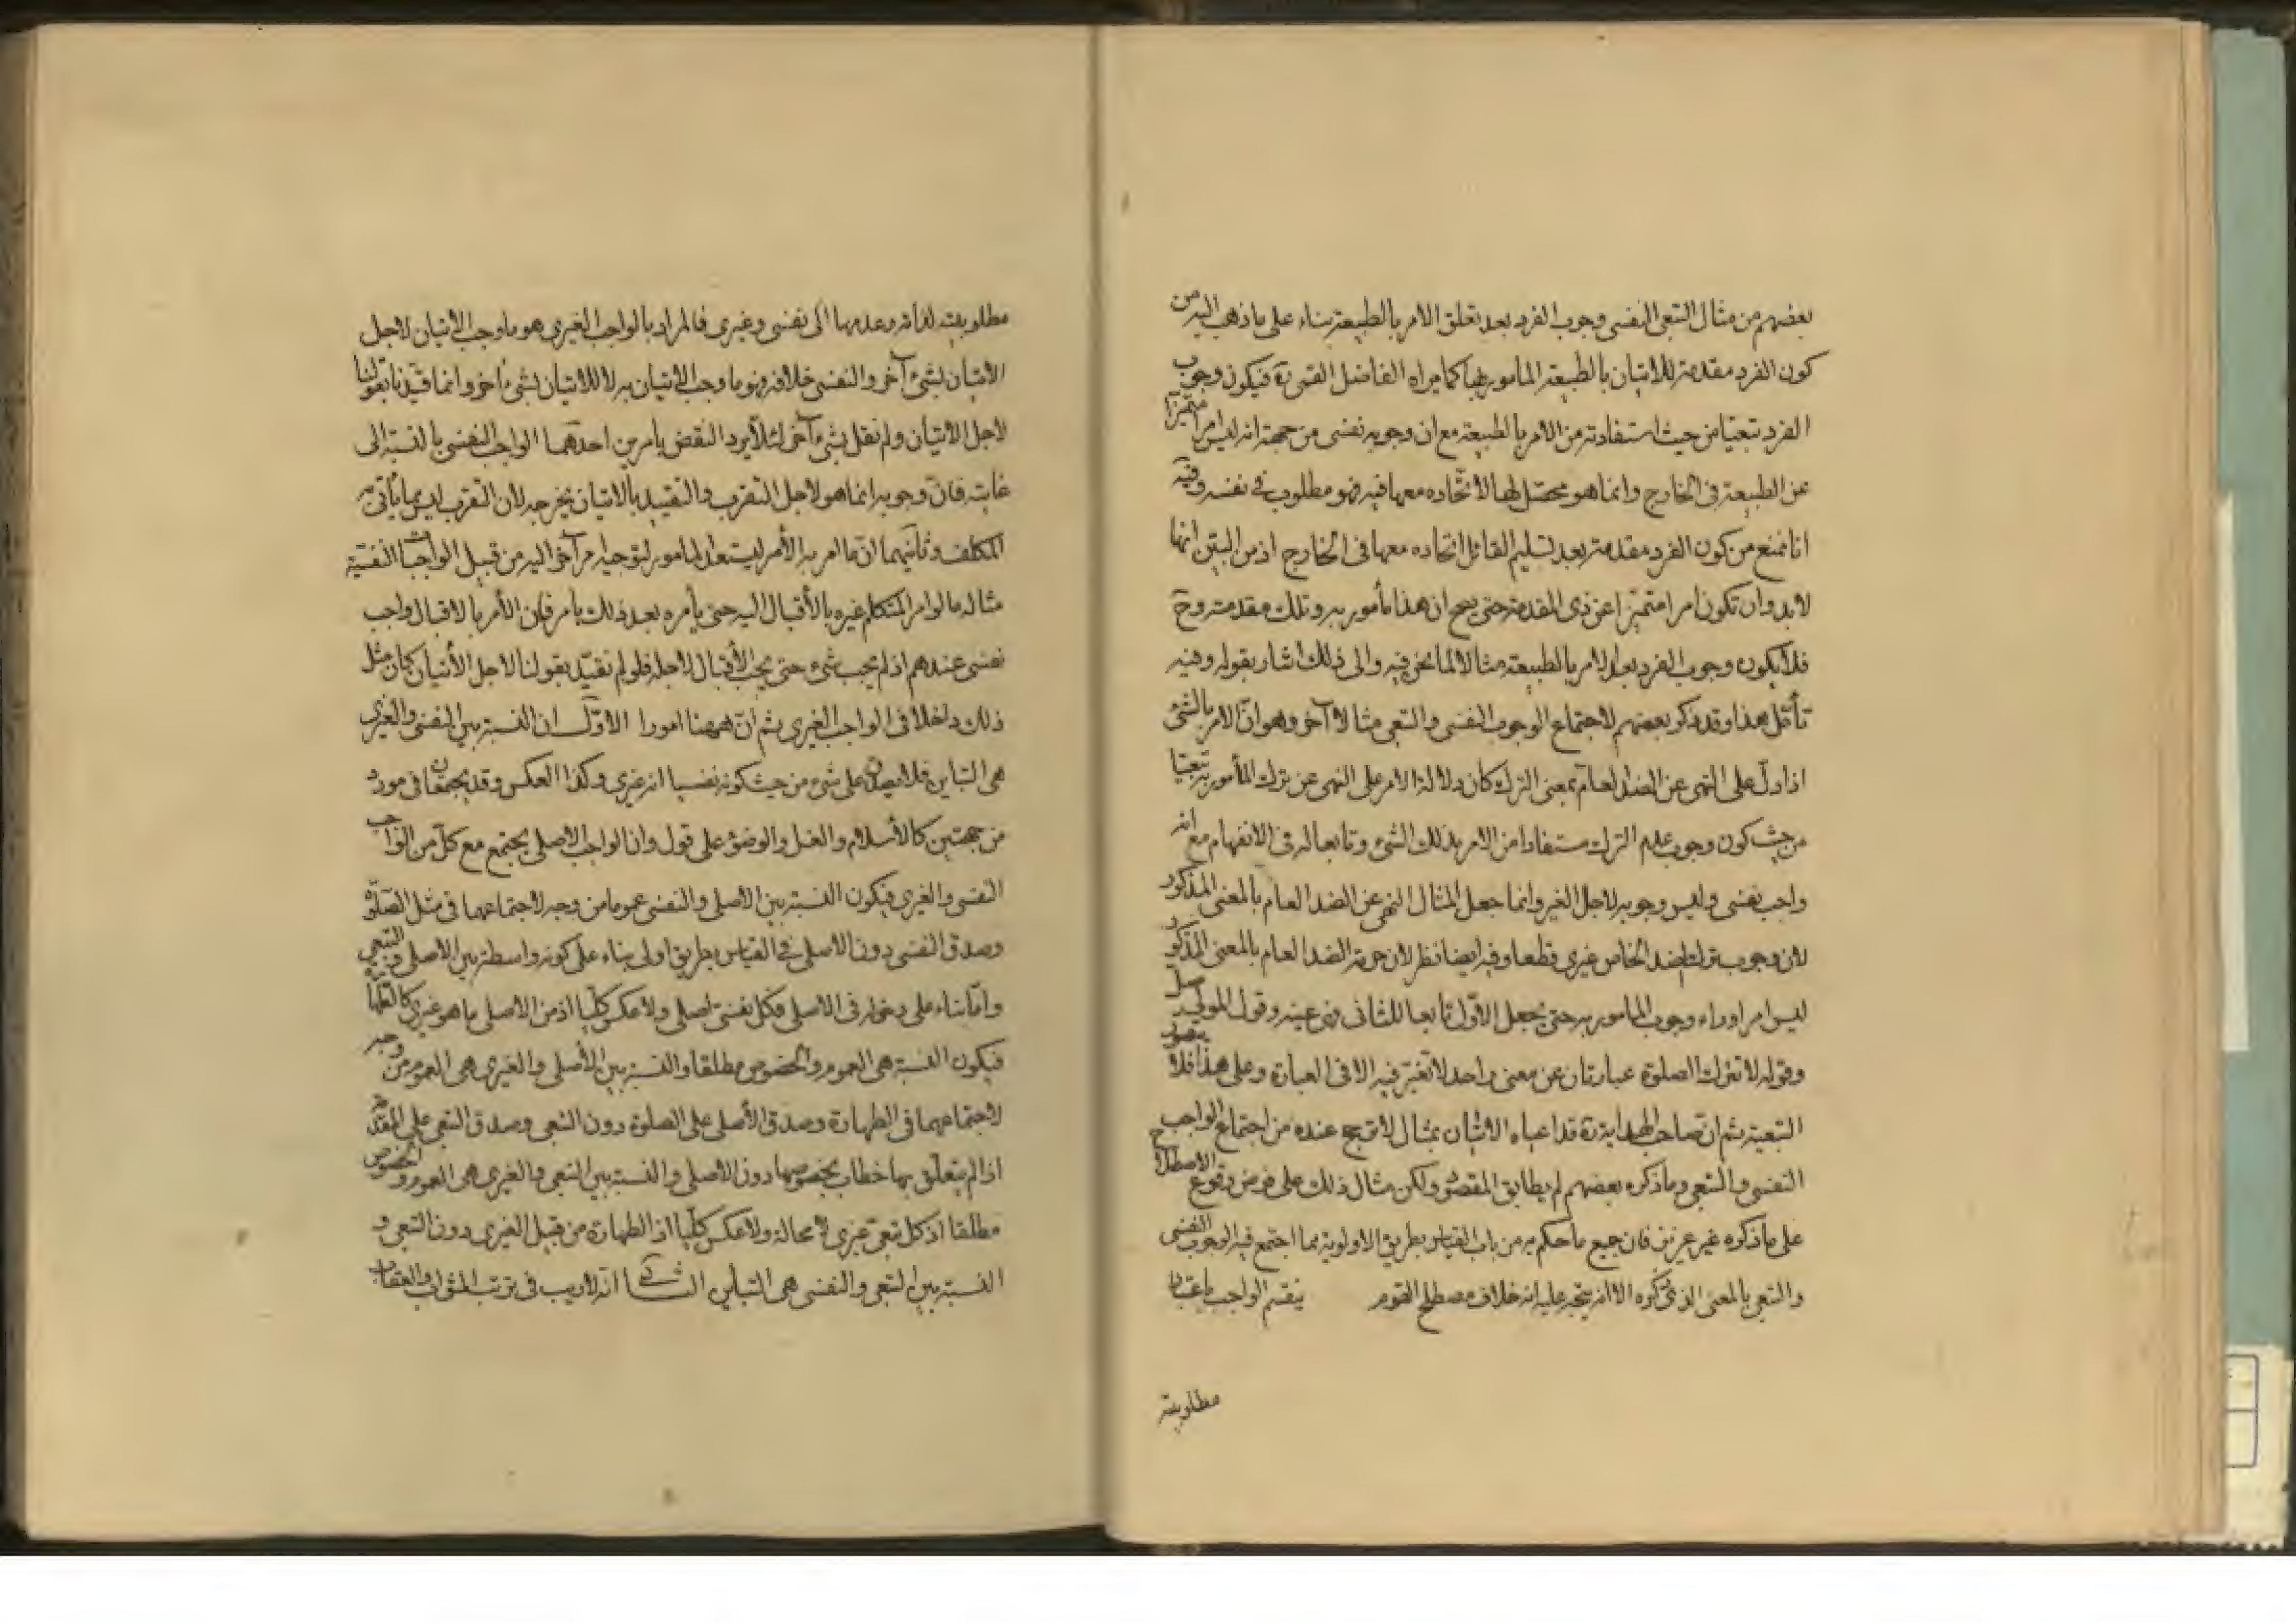 بعضهم من مثال التبعى النفسى وجوب الفرد بعد تعلق الامر بالطبيعة بناء على ما ذهب اليه من
كون الفرد مقدمة للاتيان بالطبيعة المأمور بها كما يراه الفاضل القمى ره فيكون وجوب
الفرد تبعيا من حيث استفادته من الامر بالطبيعة مع ان وجوبه نفسى من جهة انه ليس امرا متميزا
عن الطبيعة فى الخارج وانما هو محصل لها لاتحاده معها فيه فهو مطلوب فى نفسه وفيه
انا نمنع من كون الفرد مقدمة بعد تسليم القائل اتحاده معها فى الخارج اذ من البيّن انها
لابد وان تكون امرا متميزا عن ذى المقدمة حتى يصح ان هذا مأمور به وتلك مقدمته وح
فلا يكون وجوب الفرد بعد الامر بالطبيعة مثالا لما نحن فيه والى ذلك اشار بقوله وفيه
تأمّل هذا وقد ذكر بعضهم لاجتماع الوجوب النفسى والتبعى مثالا آخر وهو انّ الامر بالشئ
اذا دلّ على النهى عن الضد العام بمعنى الترك كان دلالة الامر على النهى عن ترك المأمور به تبعيا
من حيث كون وجوب عدم الترك مستفادا من الامر بذلك الشئ وتابعا له فى الانفهام مع انه
واجب نفسى وليس وجوبه لاجل الغير وانما جعل المثال النهى عن الضد العام بالمعنى المذكور
لان وجوب ترك الضد الخاص غيرى قطعا وفيه ايضا نظر لان حرمة الضد العام بالمعنى المذكور
ليس امرا وراء وجوب المأمور به حتى يجعل الاوّل تابعا للثانى فهو عينه وقول المولى صل
وقوله لا تترك الصلوة عبارتان عن معنى واحد لا تغيّر فيه الا فى العبارة وعلى هذا فلا يتصور
التبعية ثم ان صاحب الهداية ره قد اعياه الاتيان بمثال لا قبح عنده من اجتماع الواجب
النفسى والتبعى وما ذكره بعضهم لم يطابق المقصود ولكن مثال ذلك على فرض وقوع الاصطلاح
على ما ذكره غير عزيز فان جميع ما حكم به من باب القياس بطريق الاولوية مما اجتمع فيه الوجوب النفسى
والتبعى بالمعنى الذى ذكره الا انه يتجه عليه انه خلاف مصطلح القوم ينقسم الواجب باعتبار
مطلوبيته
مطلوبيته لذاته وعدمها الى نفسى وغيرى فالمراد بالواجب الغيرى هو ما وجب الاتيان لاجل
الاتيان بشئ آخر والنفسى خلافه وهو ما وجب الاتيان به لا للاتيان بشئ آخر وانما قيّدنا بقولنا
لاجل الاتيان ولم نقل بشئ آخر لئلا يرد النقض بامرين احدهما الواجب النفسى بالنسبة الى
غايته فانّ وجوبه انما هو لاجل التقرب والتقييد بالاتيان يخرجه لان التقرب ليس مما يأتى به
المكلف وثانيهما انّ ما امر به الآمر ليستعد المأمور لتوجيه امر آخر اليه من قبيل الواجبات النفسية
مثاله ما لو امر المتكلم غيره بالأقبال اليه حتى يأمره بعد ذلك بامر فان الأمر بالاقبال واجب
نفسى عندهم اذ لم يجب شئ حتى يجب الأقبال لاجله فلو لم نقيّد بقولنا لاجل الأتيان كان مثل
ذلك داخلا فى الواجب الغيرى ثم انّ ههنا امورا الاوّل ان النسبة بين النفسى والغيرى
هى التباين فلا يصدق على شئ من حيث كونه نفسيا انه غيرى وكذا العكس وقد يجتمعان فى مورد
من جهتين كالأسلام والغسل والوضوء على قول وان الواجب الاصلى يجتمع مع كلّ من الواجب
النفسى والغيرى فيكون النسبة بين الاصلى والنفسى عموما من وجه لاجتماعهما فى مثل الصلوة
وصدق النفسى دون الاصلى فى القياس بطريق اولى بناء على كونه واسطة بين الاصلى والتبعى
وامّا بناء على دخوله فى الاصلى فكل نفسى اصلى ولا عكس كليّا اذ من الاصلى ما هو غيرى كالطهارة
فيكون النسبة هى العموم والخصوص مطلقا والنسبة بين الأصلى والغيرى هى العموم من وجه
لاجتماعهما فى الطهارة وصدق الأصلى على الصلوة دون التبعى وصدق التبعى على المقدمة
اذا لم يتعلّق بها خطاب بخصوصها دون الاصلى والنسبة بين التبعى والغيرى هى العموم والخصوص
مطلقا اذ كل تبعى غيرى لا محالة ولا عكس كليّا اذ الطهارة من قبيل الغيرى دون التبعى و
النسبة بين التبعى والنفسى هى التباين الثانى انّه لا ريب فى ترتب المثوبات والعقاب